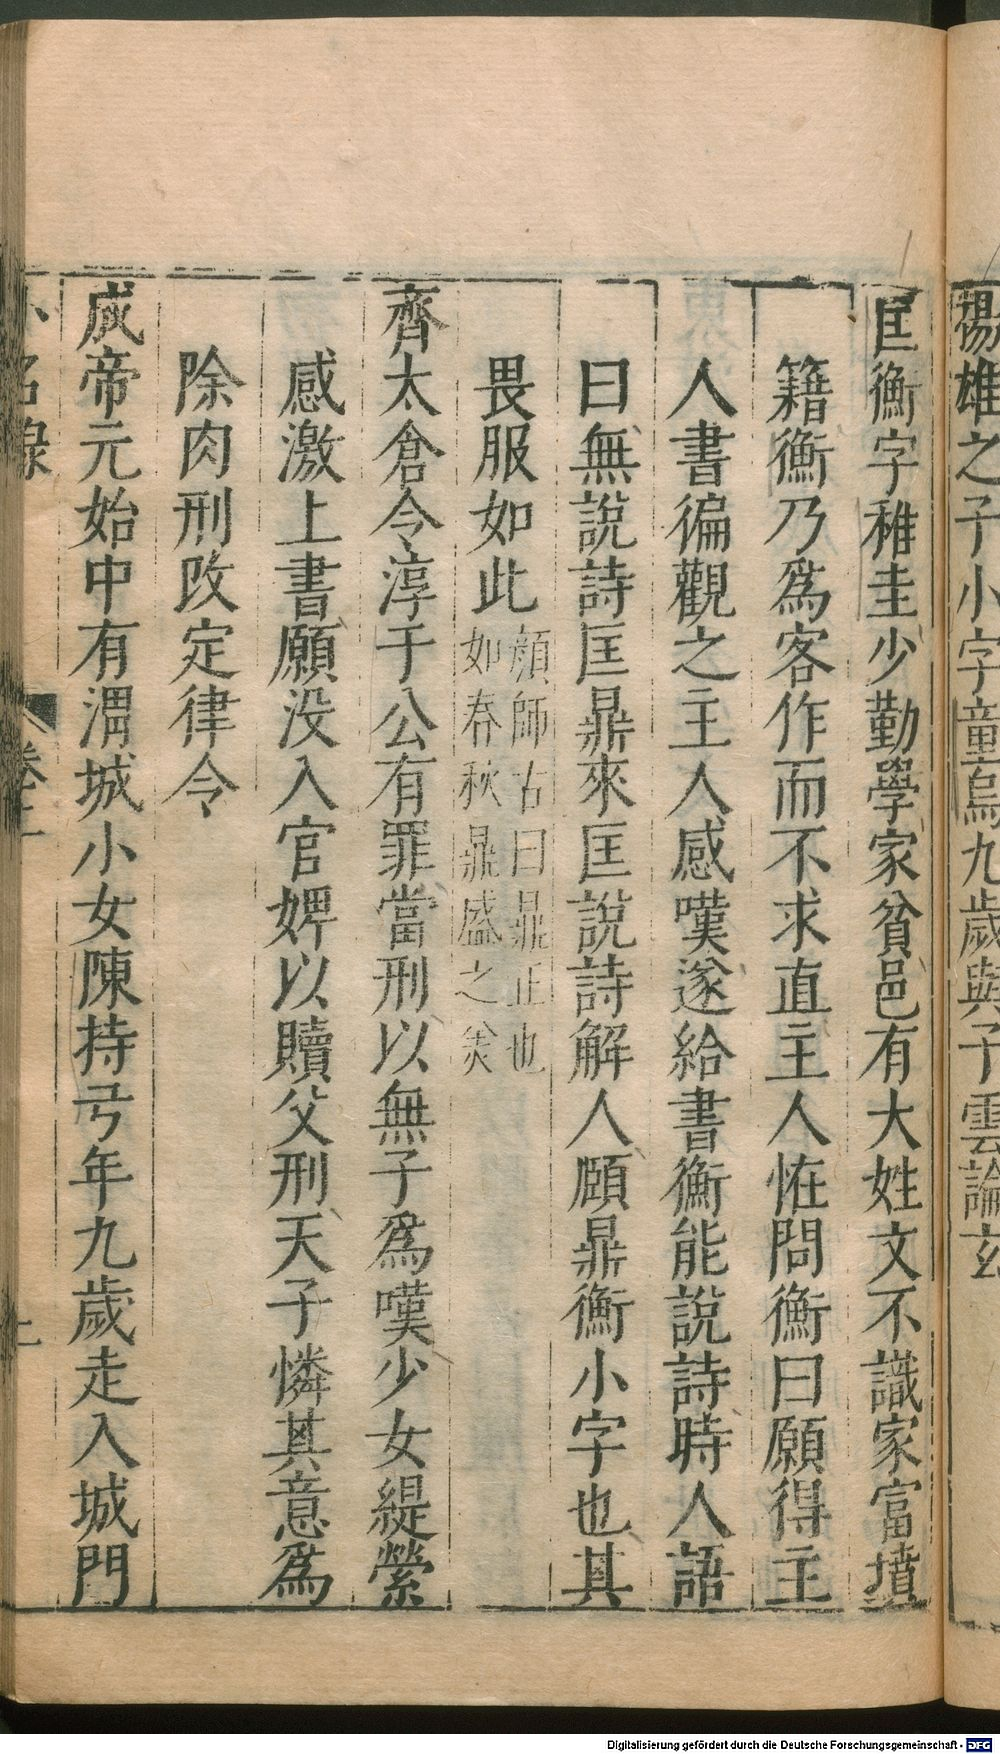 揚雄之子小字童烏九歲與子雲論玄
匡衡字稚圭少勤學家貧邑有大姓文不識家富墳
籍衡乃爲客作而不求直主人怪問衡曰願得主
人書徧觀之主人感嘆遂給書衡能說詩時人語
曰無說詩匡鼎來匡說詩解人頤鼎衡小字也其
畏服如此顏師古曰鼎正也
如春秋鼎盛之義
齊太倉令淳于公有罪當刑以無子爲嘆少女緹縈
感激上書願没入官婢以贖父刑天子憐其意爲
除肉刑改定律令
成帝元始中有渭城小女陳持弓年九歲走入城門
小名錄 卷上 上
Digitalisierung gefördert durch die Deutsche Forschungsgemeinschaft - DFG